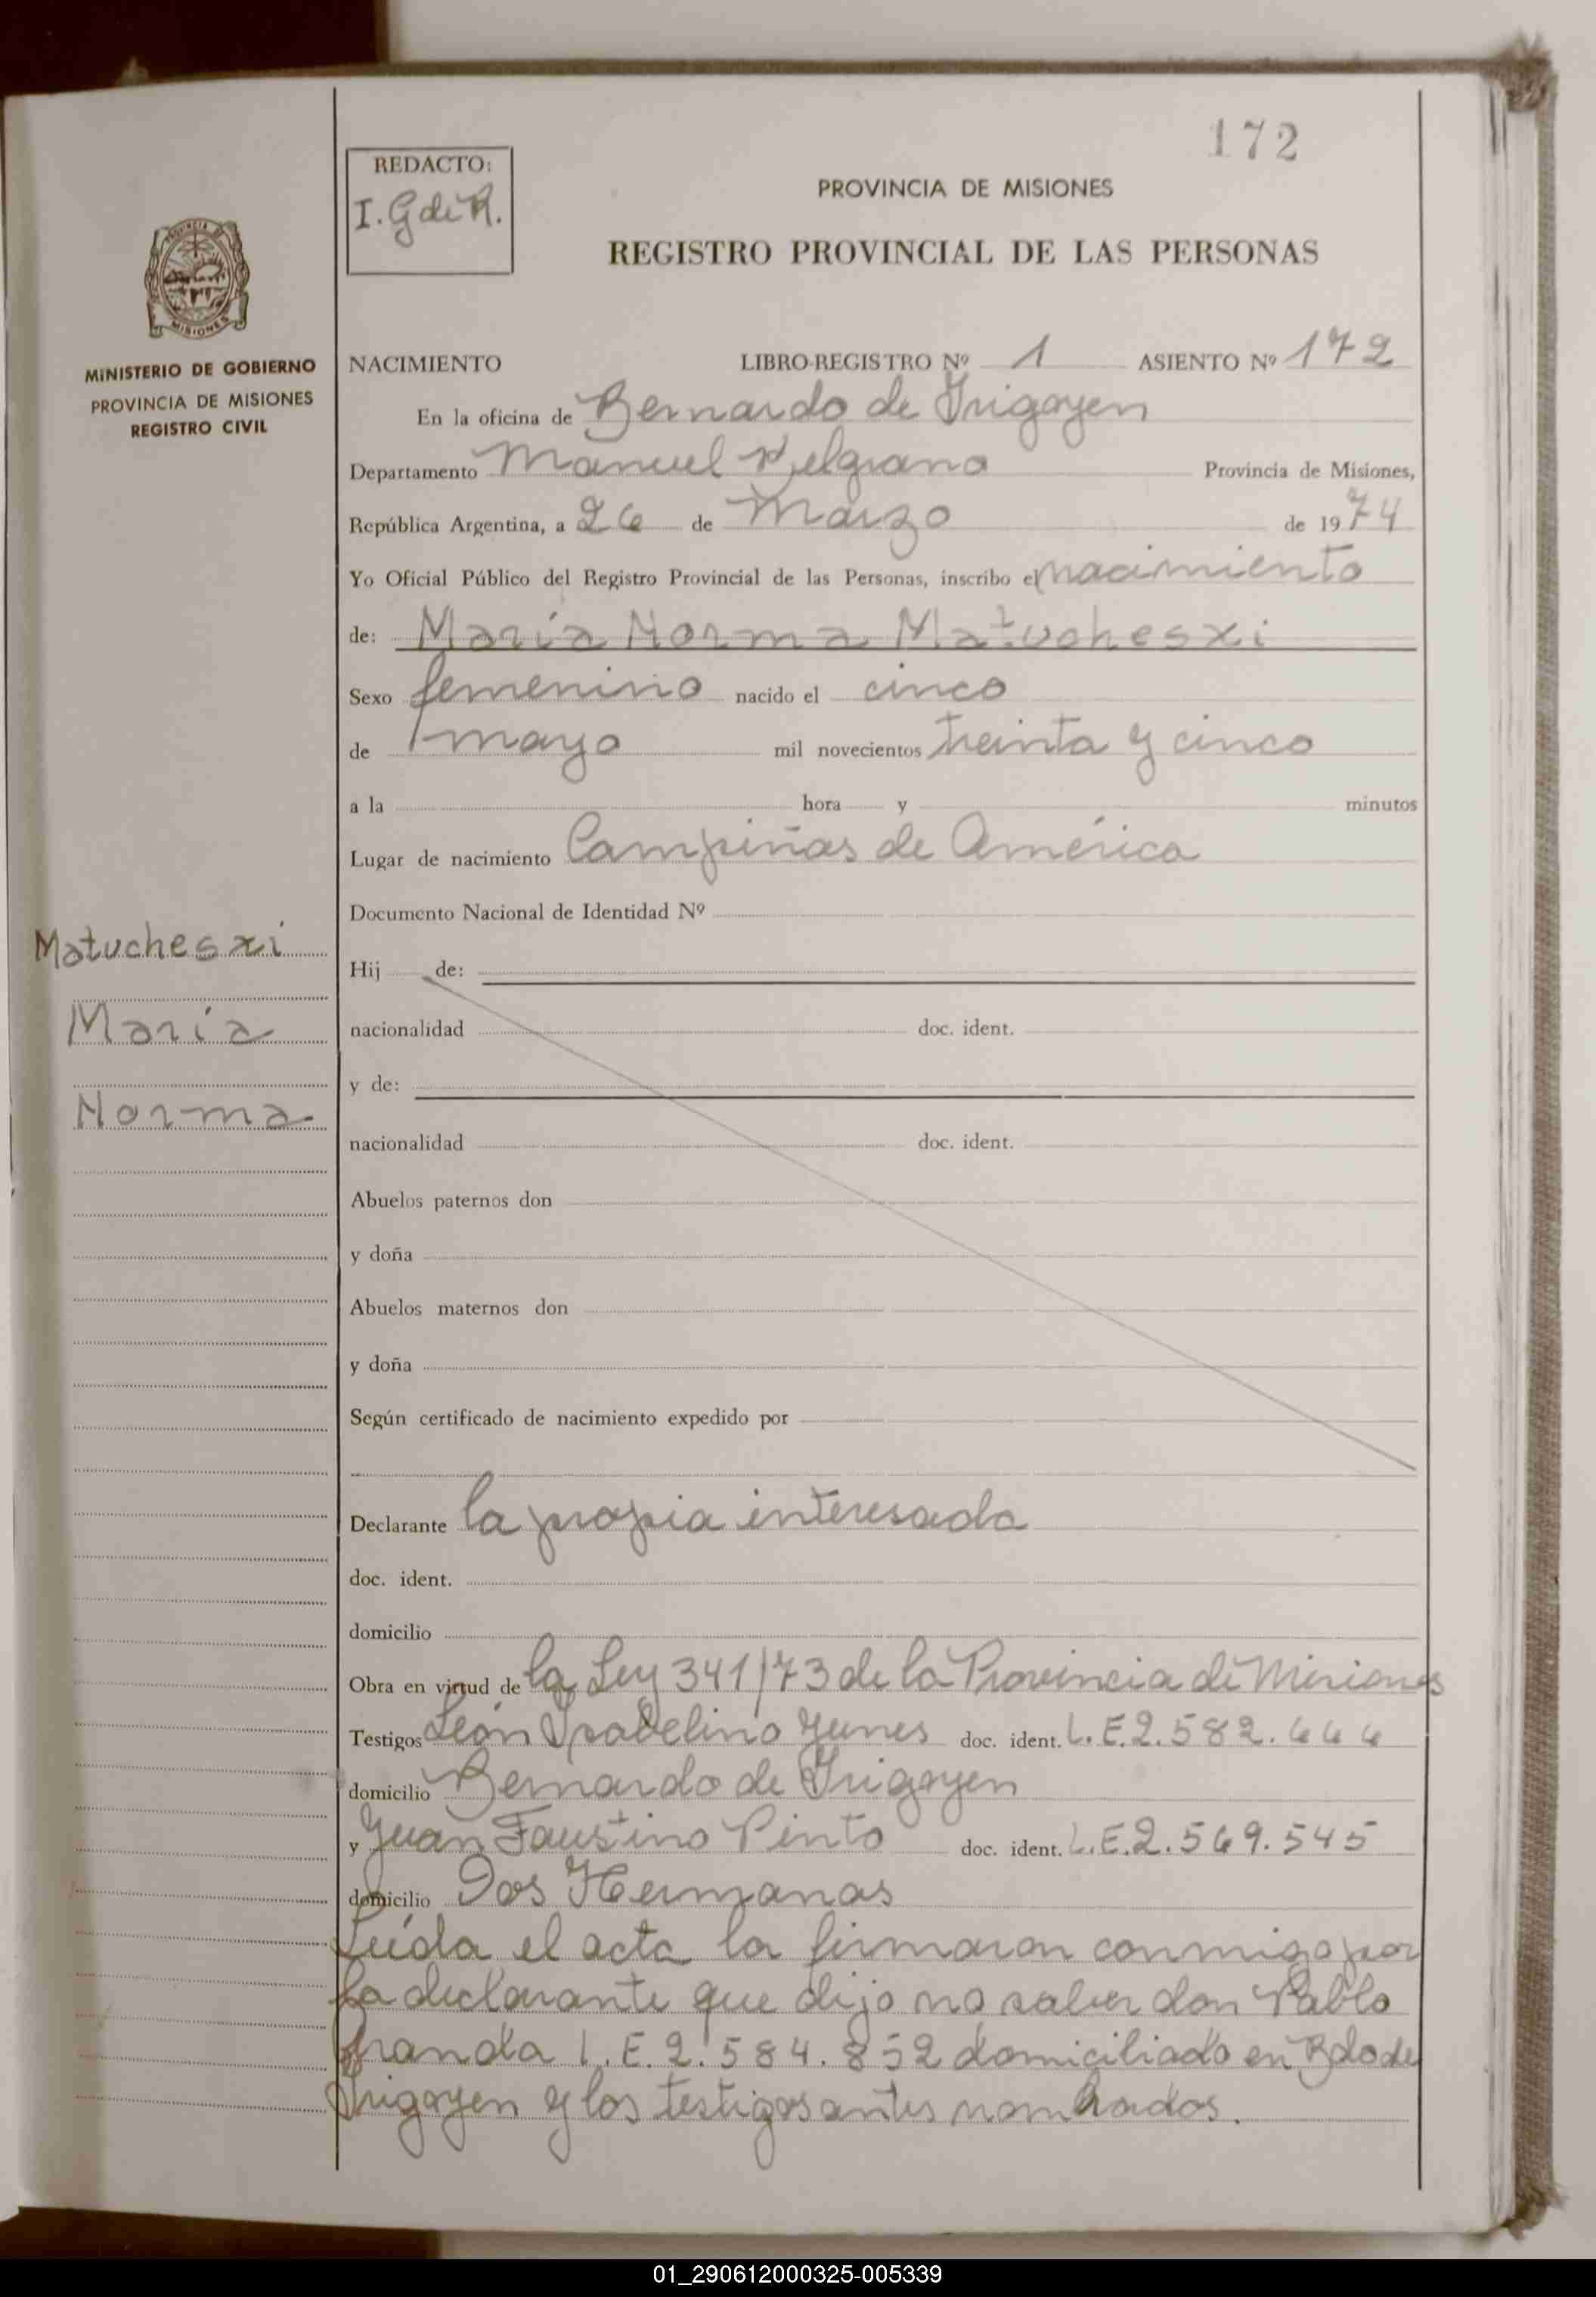 172
REDACTO:
I. G de R.
PROVINCIA DE MISIONES
REGISTRO PROVINCIAL DE LAS PERSONAS
PROVINCIA DE
MISIONES
MINISTERIO DE GOBIERNO
PROVINCIA DE MISIONES
REGISTRO CIVIL
NACIMIENTO LIBRO-REGISTRO Nº 1 ASIENTO Nº 172
En la oficina de Bernardo de Irigoyen
Departamento Manuel Belgrano Provincia de Misiones,
República Argentina, a 26 de Marzo de 1974
Yo Oficial Público del Registro Provincial de las Personas, inscribo el nacimiento
de: María Norma Matuchesxi
Sexo femenino nacido el cinco
de mayo mil novecientos treinta y cinco
a la hora y minutos
Lugar de nacimiento Campiñas de América
Documento Nacional de Identidad Nº
Matuchesxi
María
Norma
Hij de:
nacionalidad doc. ident.
y de:
nacionalidad doc. ident.
Abuelos paternos don
y doña
Abuelos maternos don
y doña
Según certificado de nacimiento expedido por
Declarante la propia interesada
doc. ident.
domicilio
Obra en virtud de la Ley 341/73 de la Provincia de Misiones
Testigos León Isabelino Yunes doc. ident. L.E.2.582.666
domicilio Bernardo de Irigoyen
y Juan Faustino Pinto doc. ident. L.E.2.569.545
domicilio Dos Hermanas
Leída el acta la firmaron conmigo por
la declarante que dijo no saber don Pablo
L.E.2.584.852 domiciliado en Bdo de
Irigoyen y los testigos antes nombrados.
01_290612000325-005339